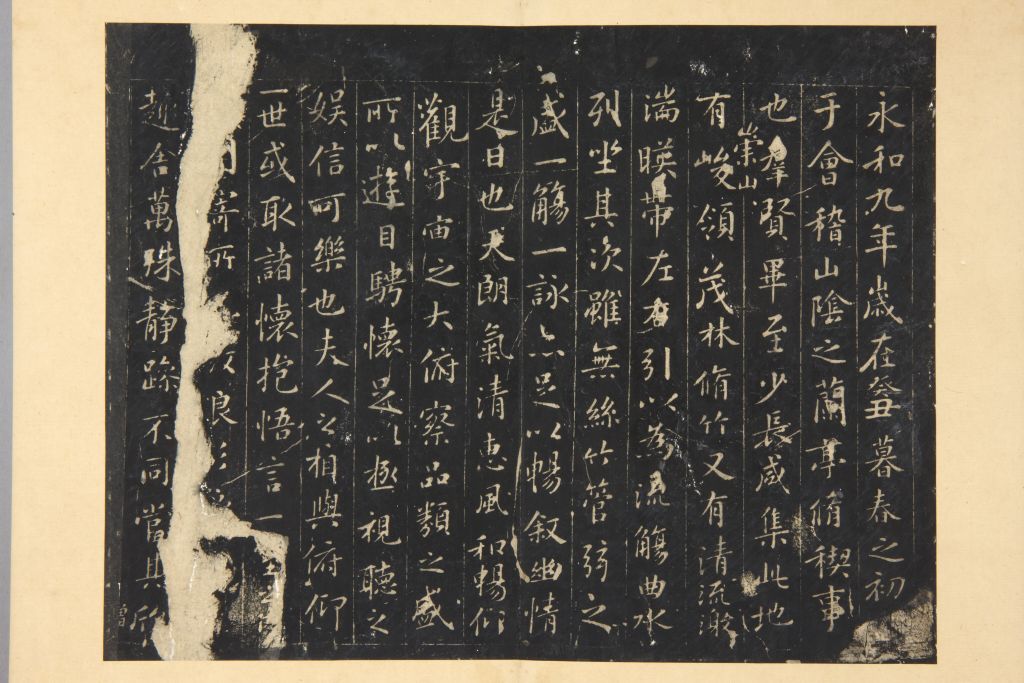 永和九年歲在癸丑暮春之初
于會稽山陰之蘭亭脩稧事
也羣賢畢至少長咸集此地
崇山
有峻領茂林脩竹又有清流激
湍暎帶左右引以為流觴曲水
列坐其次雖無絲竹管弦之
盛一觴一詠亦足以暢叙幽情
是日也天朗氣清惠風和暢仰
觀宇宙之大俯察品類之盛
所以遊目騁懷足以極視聽之
娛信可樂也夫人之相與俯仰
一世或取諸懷抱悟言一
寄所浪
趣舍萬殊靜躁不同當其欣
僧